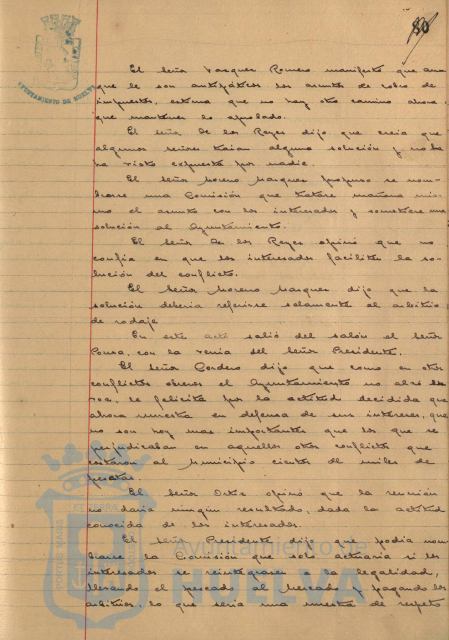 80
AYUNTAMIENTO DE HUELVA
El Señor Vazquez Romero manifestó que aun
que le son antipáticos los asuntos de cobro de
impuestos, estima que no hay otro camino ahora
que mantener lo aprobado.
El Señor De los Reyes dijo que creia que
algunos señores traian alguna solución y no la
ha visto expuesta por nadie.
El Señor Moreno Marquez propuso se nom-
brase una Comisión que tratase mañana mis-
mo el asunto con los interesados y sometiese una
solución al Ayuntamiento.
El Señor De los Reyes opinó que no
confia en que los interesados faciliten la so-
lución del conflicto.
El Señor Moreno Marquez dijo que la
solución deberia referirse solamente al arbitrio
de rodaje.
En este acto salió del salón el Señor
Ponce, con la venia del Señor Presidente.
El Señor Cordero dijo que como en otros
conflictos obreros el Ayuntamiento no alzó la
voz, le felicita por la actitud decidida que
ahora muestra en defensa de sus intereses, que
no son hoy mas importantes que los que se
perjudicaban en aquellos otros conflictos que
costaron al Municipio cientos de miles de
pesetas.
El Señor Ortiz opinó que la reunión
no daria ningún resultado, dada la actitud
conocida de los interesados.
El Señor Presidente dijo que podia nom-
brarse la Comisión que solo actuaria si los
interesados se reintegrasen a la legalidad,
llevando el pescado al Mercado y pagando los
arbitrios, lo que seria una muestra de respeto
Ayuntamiento de
HUELVA